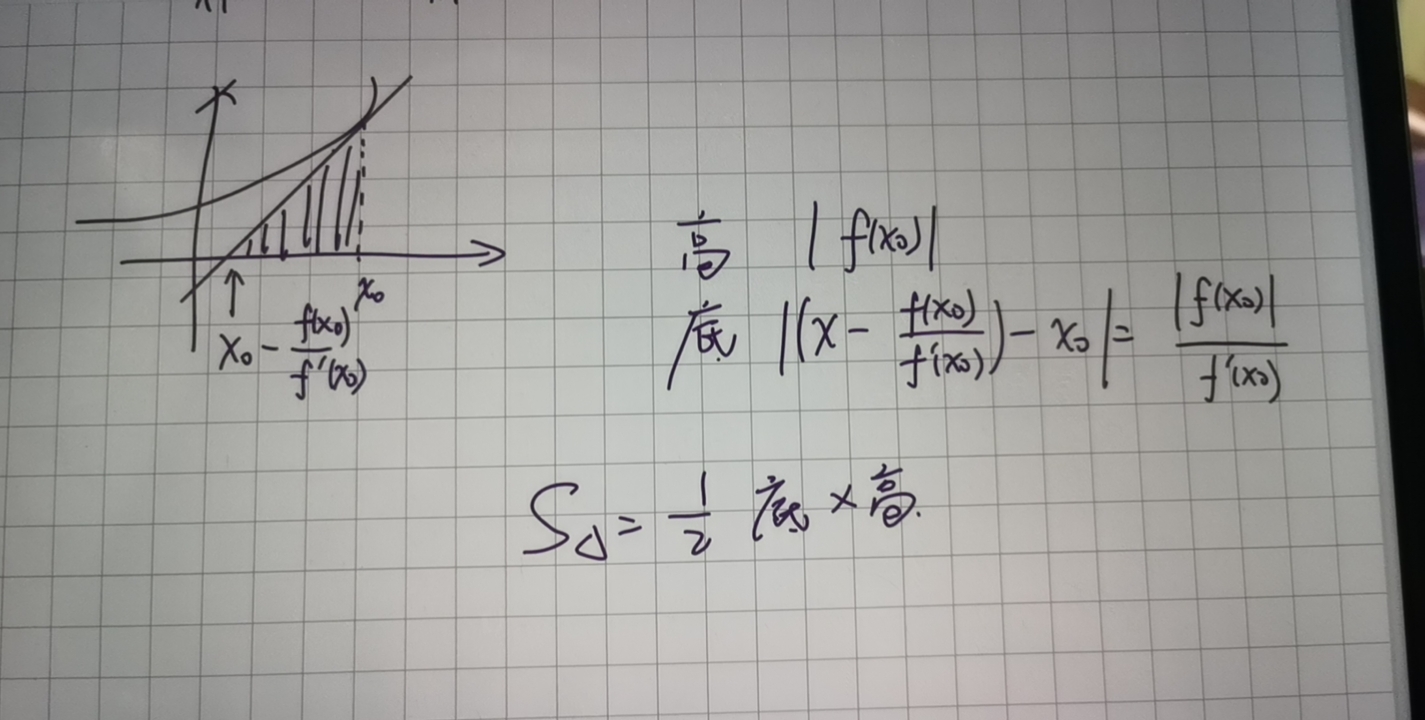 x₀
x₀ - f(x₀)/f'(x₀)
高 |f(x₀)|
底 |(x - f(x₀)/f'(x₀)) - x₀| = |f(x₀)|/f'(x₀)
S△ = 1/2 底 × 高.